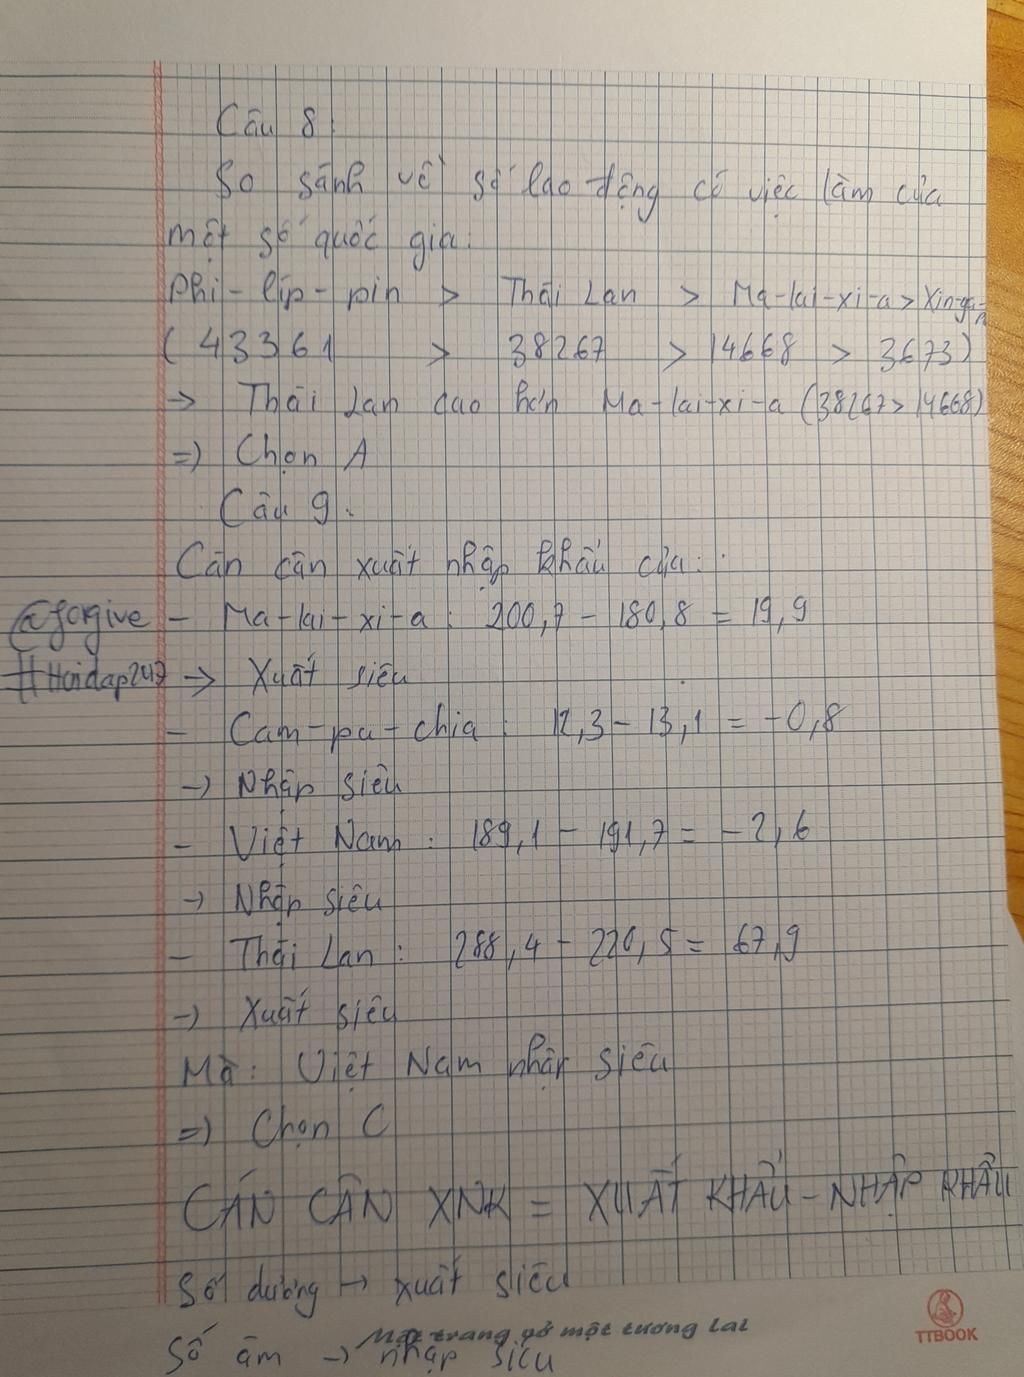 Câu 8:
So sánh về số lao động có việc làm của
một số quốc gia:
Phi-líp-pin > Thái Lan > Ma-lai-xi-a > Xin-ga-
(43361 > 38267 > 14668 > 3673)
→ Thái Lan cao hơn Ma-lai-xi-a (38267 > 14668)
=) Chọn A
Câu 9:
Cán cân xuất nhập khẩu của:
@forgive - Ma-lai-xi-a: 200,7 - 180,8 = 19,9
#Hoidap247 → Xuất siêu
- Cam-pu-chia: 12,3 - 13,1 = -0,8
→ Nhập siêu
- Việt Nam: 189,1 - 191,7 = -2,6
→ Nhập siêu
- Thái Lan: 288,4 - 220,5 = 67,9
→ Xuất siêu
Mà: Việt Nam nhập siêu
=) Chọn C
CÁN CÂN XNK = XUẤT KHẨU - NHẬP KHẨU
Số dương → xuất siêu
Một trang vở một tương lai
TTBOOK
Số âm → nhập siêu